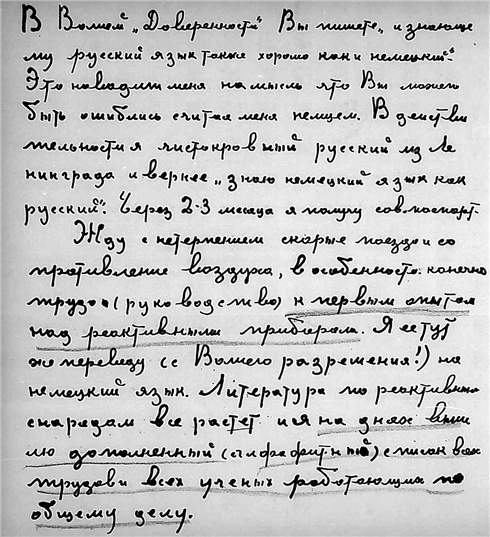 В Вашей „Доверенности" Вы пишете „и знающе
му русский язык также хорошо как и немецкий".
Это наводит меня на мысль что Вы может
быть ошиблись считая меня немцем. В действи
тельности я чистокровный русский из Ле
нинграда и вернее „знаю немецкий язык как
русский". Через 2-3 месяца я получу совпаспорт.
Жду с нетерпением скорые поезда и со
противление воздуха, в особенности конечно
трудов (руководство) к первым опытам
над реактивными прибирами. Я ее тут
же переведу (с Вашего разрешения!) на
немецкий язык. Литература по реактивным
снарядам все растет и я на днях вышлю
лю дополненный (алфавитный) список всех
трудов и всех ученых работающих по
общему делу.